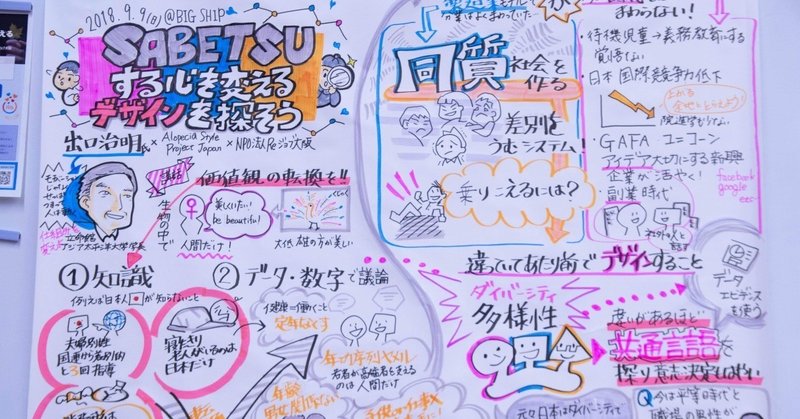 2018.9.9(日)@BIG SHIP
SABETSU
する心を変える
デザインを探そう
出口治明氏 × Alopecia Style Project Japan × NPO法人 Reジョブ大阪
立命館
アジア太平洋大学学長
価値観の転換を!!
生物の中で
美しいたい!
be beautiful!
人間だけ!
くじゃく
大体雄の方が美しい
① 知識
例えば日本人が知らないこと
夫婦別姓
国連から差別的
と3回指導
寝たきり
老人がいるのは
日本だけ
② データ・数字で議論
健康=働くこと
定年なくす
年功序列やメル
若者が高齢者を支える
のは人間だけ
年齢
男女関係なく
同質社会を
作る
差別を
うむシステム!
乗りこえるには?
まわらない!
・待機児童→義務教育にする
覚悟ない
・日本国際競争力低下
院進学もリアム
・GAFA ユニコーン
アイデア大切にする新興
企業が活やく!
facebook
google
etc…
・副業時代
社外の人と
話す
違っていてあたり前でデザインすること
ダイバーシティ
多様性
データ
エビデンス
を使う
違いがあるほど
共通言語
探り意志決定はやい
元々日本はダイバーシティで
Q 今は平等時代と